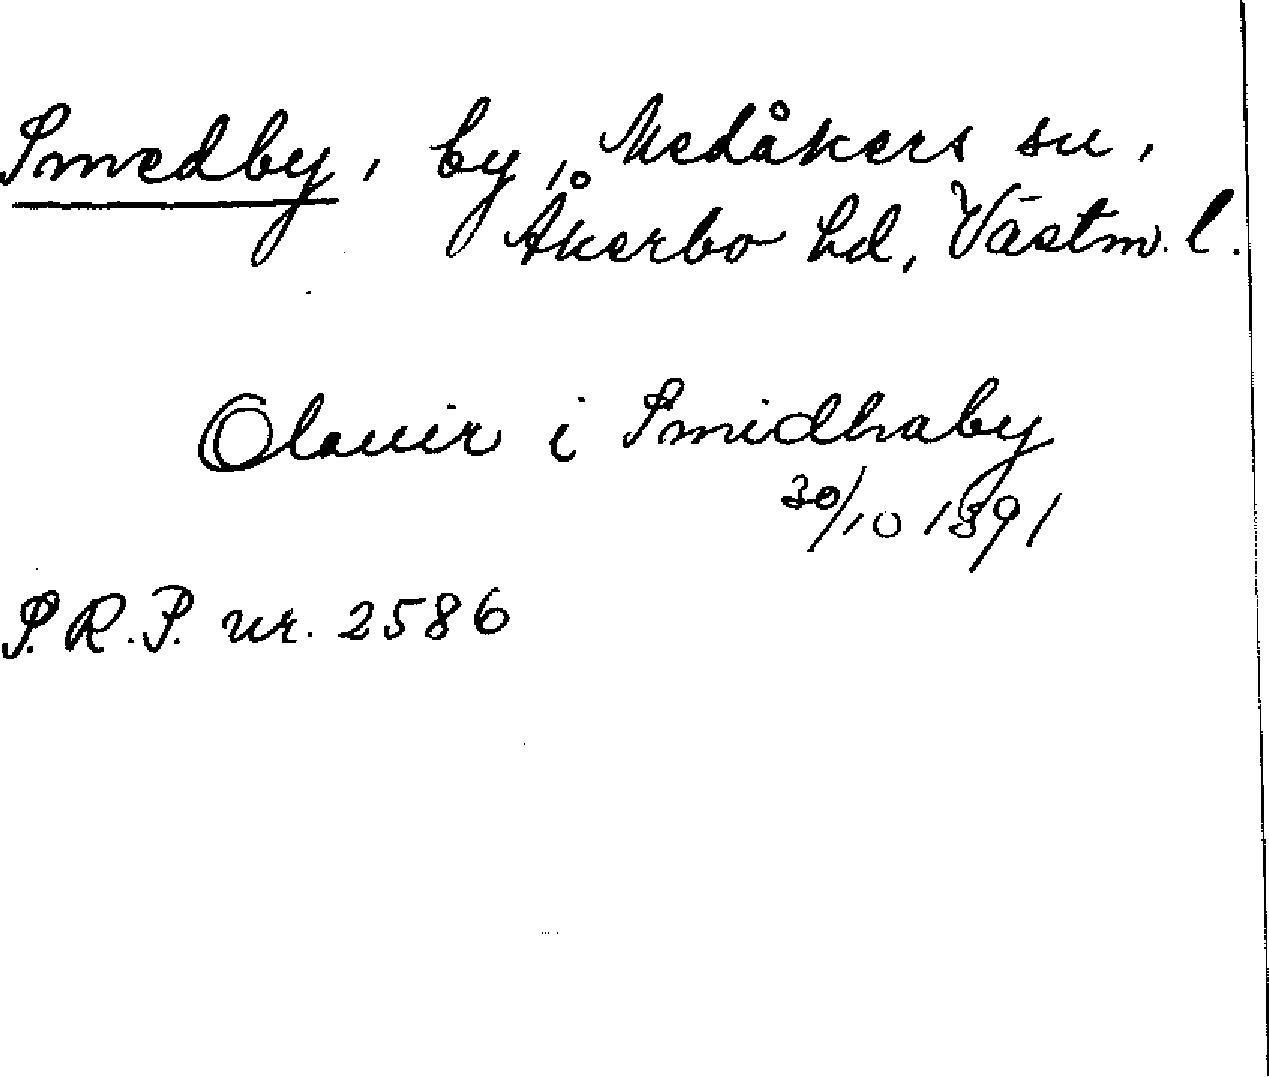 Smedby, by, Medåkers sn,
Åkerbo hd, Västm. l.
Olauir i Smidhaby
30/10 1391
S.R.P. nr. 2586